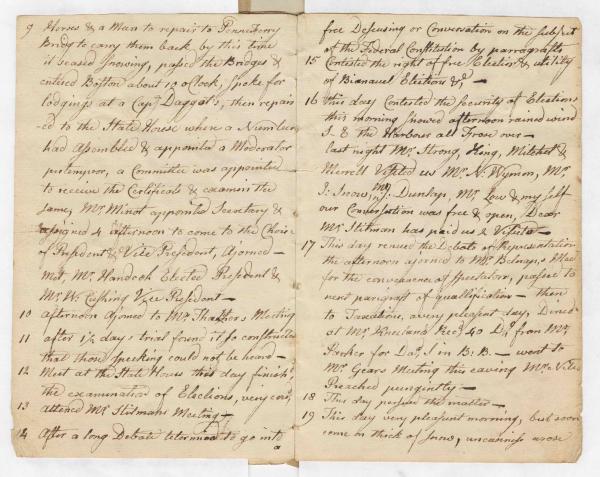 9 Horses & a Man to repair to Penniferry
Bridg to carry them back, by this time
it ceased Snowing, passed the Bridges &
entered Boston about 12 oClock, Spoke for
lodgings at a Capt Daggets, then repair
-ed to the State House when a Number
had Assembled & appointed a Moderator
protempor, a Committee was appointed
to receive the Certificats & examin the
same, Mr. Minot appointed Secretary &
asigned 4 afternoon to come to the Choice
of President & Vice President, Ajorned —
Met, Mr. Handcoh Elected President &
Mr. W. Cushing Vice President —
10 afternoon Ajorned to Mr. Thathers Meeting
11 after 1½ days trial found it so constructed
that those speeking could not be heard —
12 Meet at the State House this day finish'd
the examination of Elections, very cold,
13 attened Mr. Stilmans Meeting —
14 After a long Debate determined to go into
a
free Discusing or Conversation on the subject
of the Federal Constitution by parragrafts
15 Contested the right of free Election & utility
of Bianauel Elections &c —
16 This day Contested the Security of Elections
this morning Snowed afternoon rained wind
S. E the Harbour all Froze over —
last night Mr. Strong, King, Mitchel &
Merrell Visited us Mr. N. Wymon, Mr.
I. Snow, Mr. J. Dunlap, Mr. Low & my self
our Conversation was free & open, Dear
Mr. Stilman has paid us a Visit —
17 This day renued the Debate on Representation
the afternoon ajorned to Mr. Belnaps Meet
for the convenence of Spectators, passed to
next paragraft of quallification — then
to Taxations, a very pleasant day, Dined
at Mr. Kneeland Recd 40 Drs from Mr.
Parker for Da, I in B: B — went to
Mr. Gears Meeting this eavning Mr.
Preached pungently —
18 This day persued the matter —
19 This day very pleasant morning, but soon
come on thick of Snow, uncanniss arose